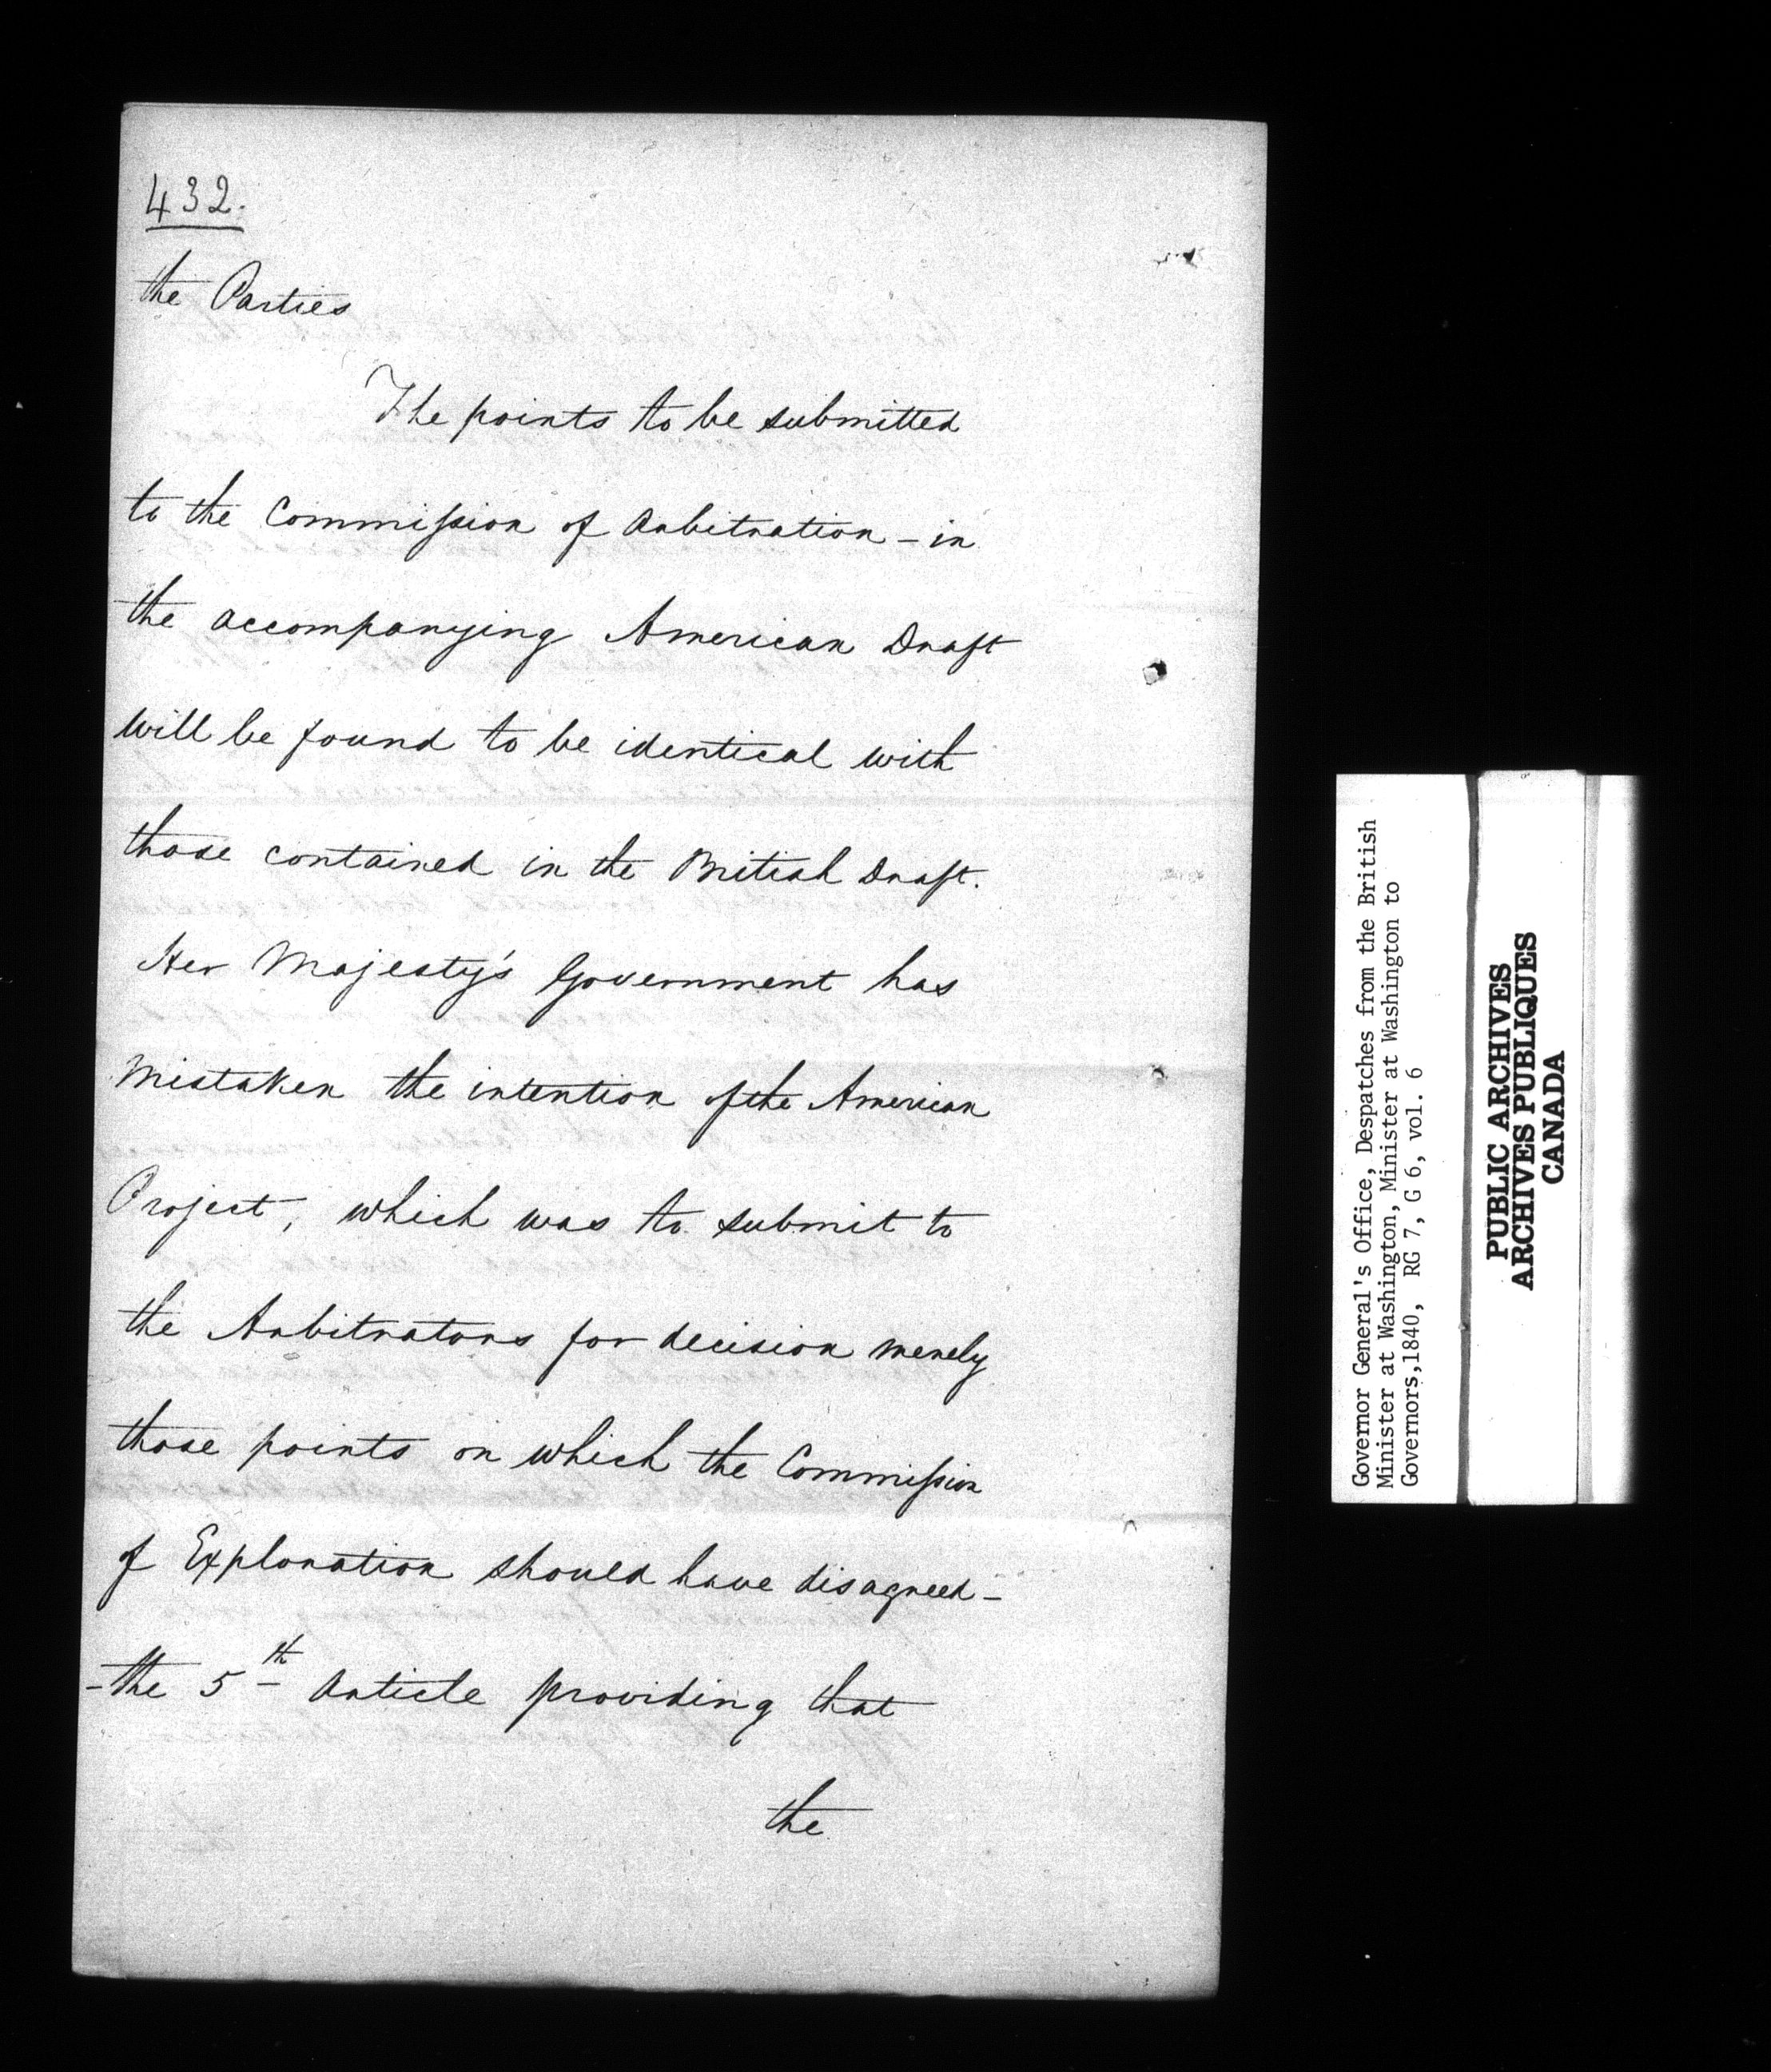 432.
the Parties
The points to be submitted
to the Commission of Arbitration - in
the accompanying American Draft
will be found to be identical with
those contained in the British Draft.
Her Majesty's Government has
mistaken the intention of the American
Project, which was to submit to
the Arbitrators for decision merely
those points on which the Commission
of Exploration should have disagreed -
- the 5th Article providing that
the
Governor General's Office, Despatches from the British
Minister at Washington, Minister at Washington to
Governors,1840, RG 7, G 6, vol. 6
PUBLIC ARCHIVES
ARCHIVES PUBLIQUES
CANADA